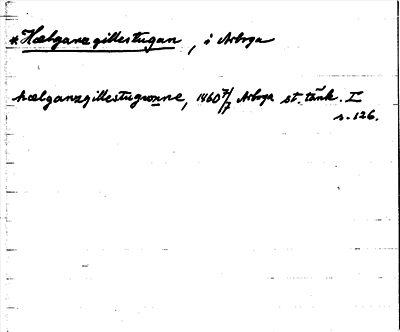 *Hælganzgillestugan, i Arboga
hælganzgillestugwnne, 1460 7/7 Arboga st. tänk. I
s. 126.